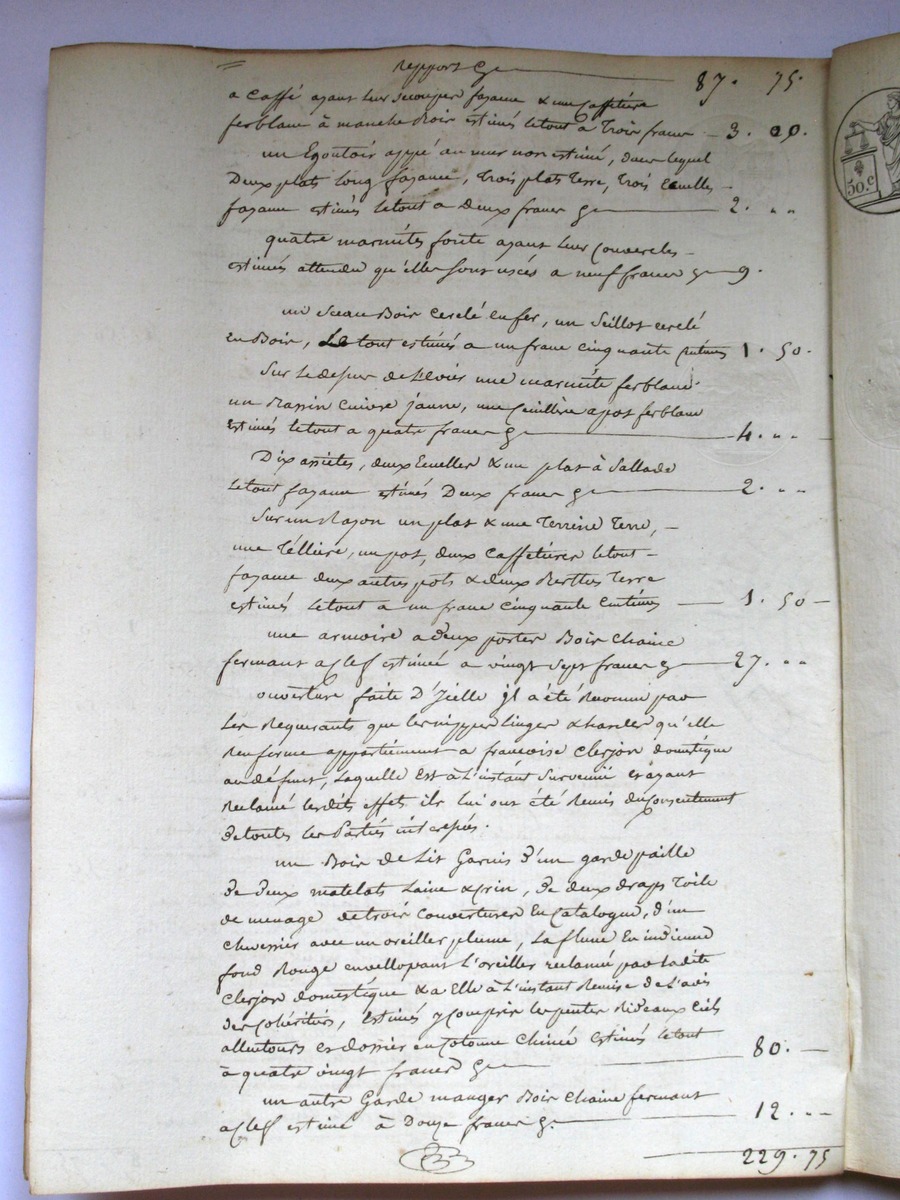 Report Cy 87. 75.
a Caffé ayant leur soucoupes fayanne & une Caffetiere
ferblanc à manche Bois estimés le tout a Trois francs 3. 00.
un Egoutoir appié au mur non estimé, dans lequel
Deux plats long fayanne, Trois plats Terre, Trois Ecuelles
fayanne estimés le tout a Deux francs Cy 2. ..
quatre marmites fonte ayant leur Couvercles
estimés attendu qu'elles sont usées a neuf francs Cy 9.
un Sceau Bois Cerclé en fer, un Seillot cerclé
en Bois, Le tout estimés a un franc Cinquante Centimes 1. 50.
Sur le dessus de L'Eviér une marmite ferblanc
un Bassin Cuivre jaune, une Cuillière a pot ferblanc
Estimés le tout a quatre francs Cy 4. ..
Dix assietes, deux Ecuelles & un plat à Sallade
le tout fayanne estimés Deux francs Cy 2. ..
Sur un Rayon un plat & une Terrine Terre,
une Tëlliere, un pot, deux Caffetieres le tout
fayanne deux autres pots & deux Berttes Terre
estimés le tout a un franc Cinquante Centimes 1. 50
une armoire a deux portes Bois Chaine
fermant a Clef estimée a vingt Sept francs Cy 27. ..
ouverture faite D'Jcelle jl a été Reconnu par
Les Requérants que les nippes linges & hardes qu'elle
Renferme appartiennent a francoise Clerjon domestique
au défunt, Laquelle Est à L'instant Survenüe et ayant
Reclamé lesdits effets ils lui ont été Remis du Consentement
de toutes les Parties intéressées.
un Bois de Lit Garnis D'un garde paille
de deux matelats Laine & Crin, de deux draps Toile
de menage de trois Couvertures En Catalogne, d'un
Chvessier avec un oreiller plume, La flune En indienne
fond Rouge envellopant L'oreiller reclamé par ladite
Clerjon domestique & a Elle à L'instant Remise de L'avis
des Cohéritiers, Estimés y Compris les pentes Rideaux Ciel
allentours et dossier en Cotonne Chinée Estimés le tout
à quatre vingt francs Cy 80.
un autre Garde manger Bois Chaine fermant
a Clef estimé à Douze francs Cy. 12. ..
229. 75
50.C